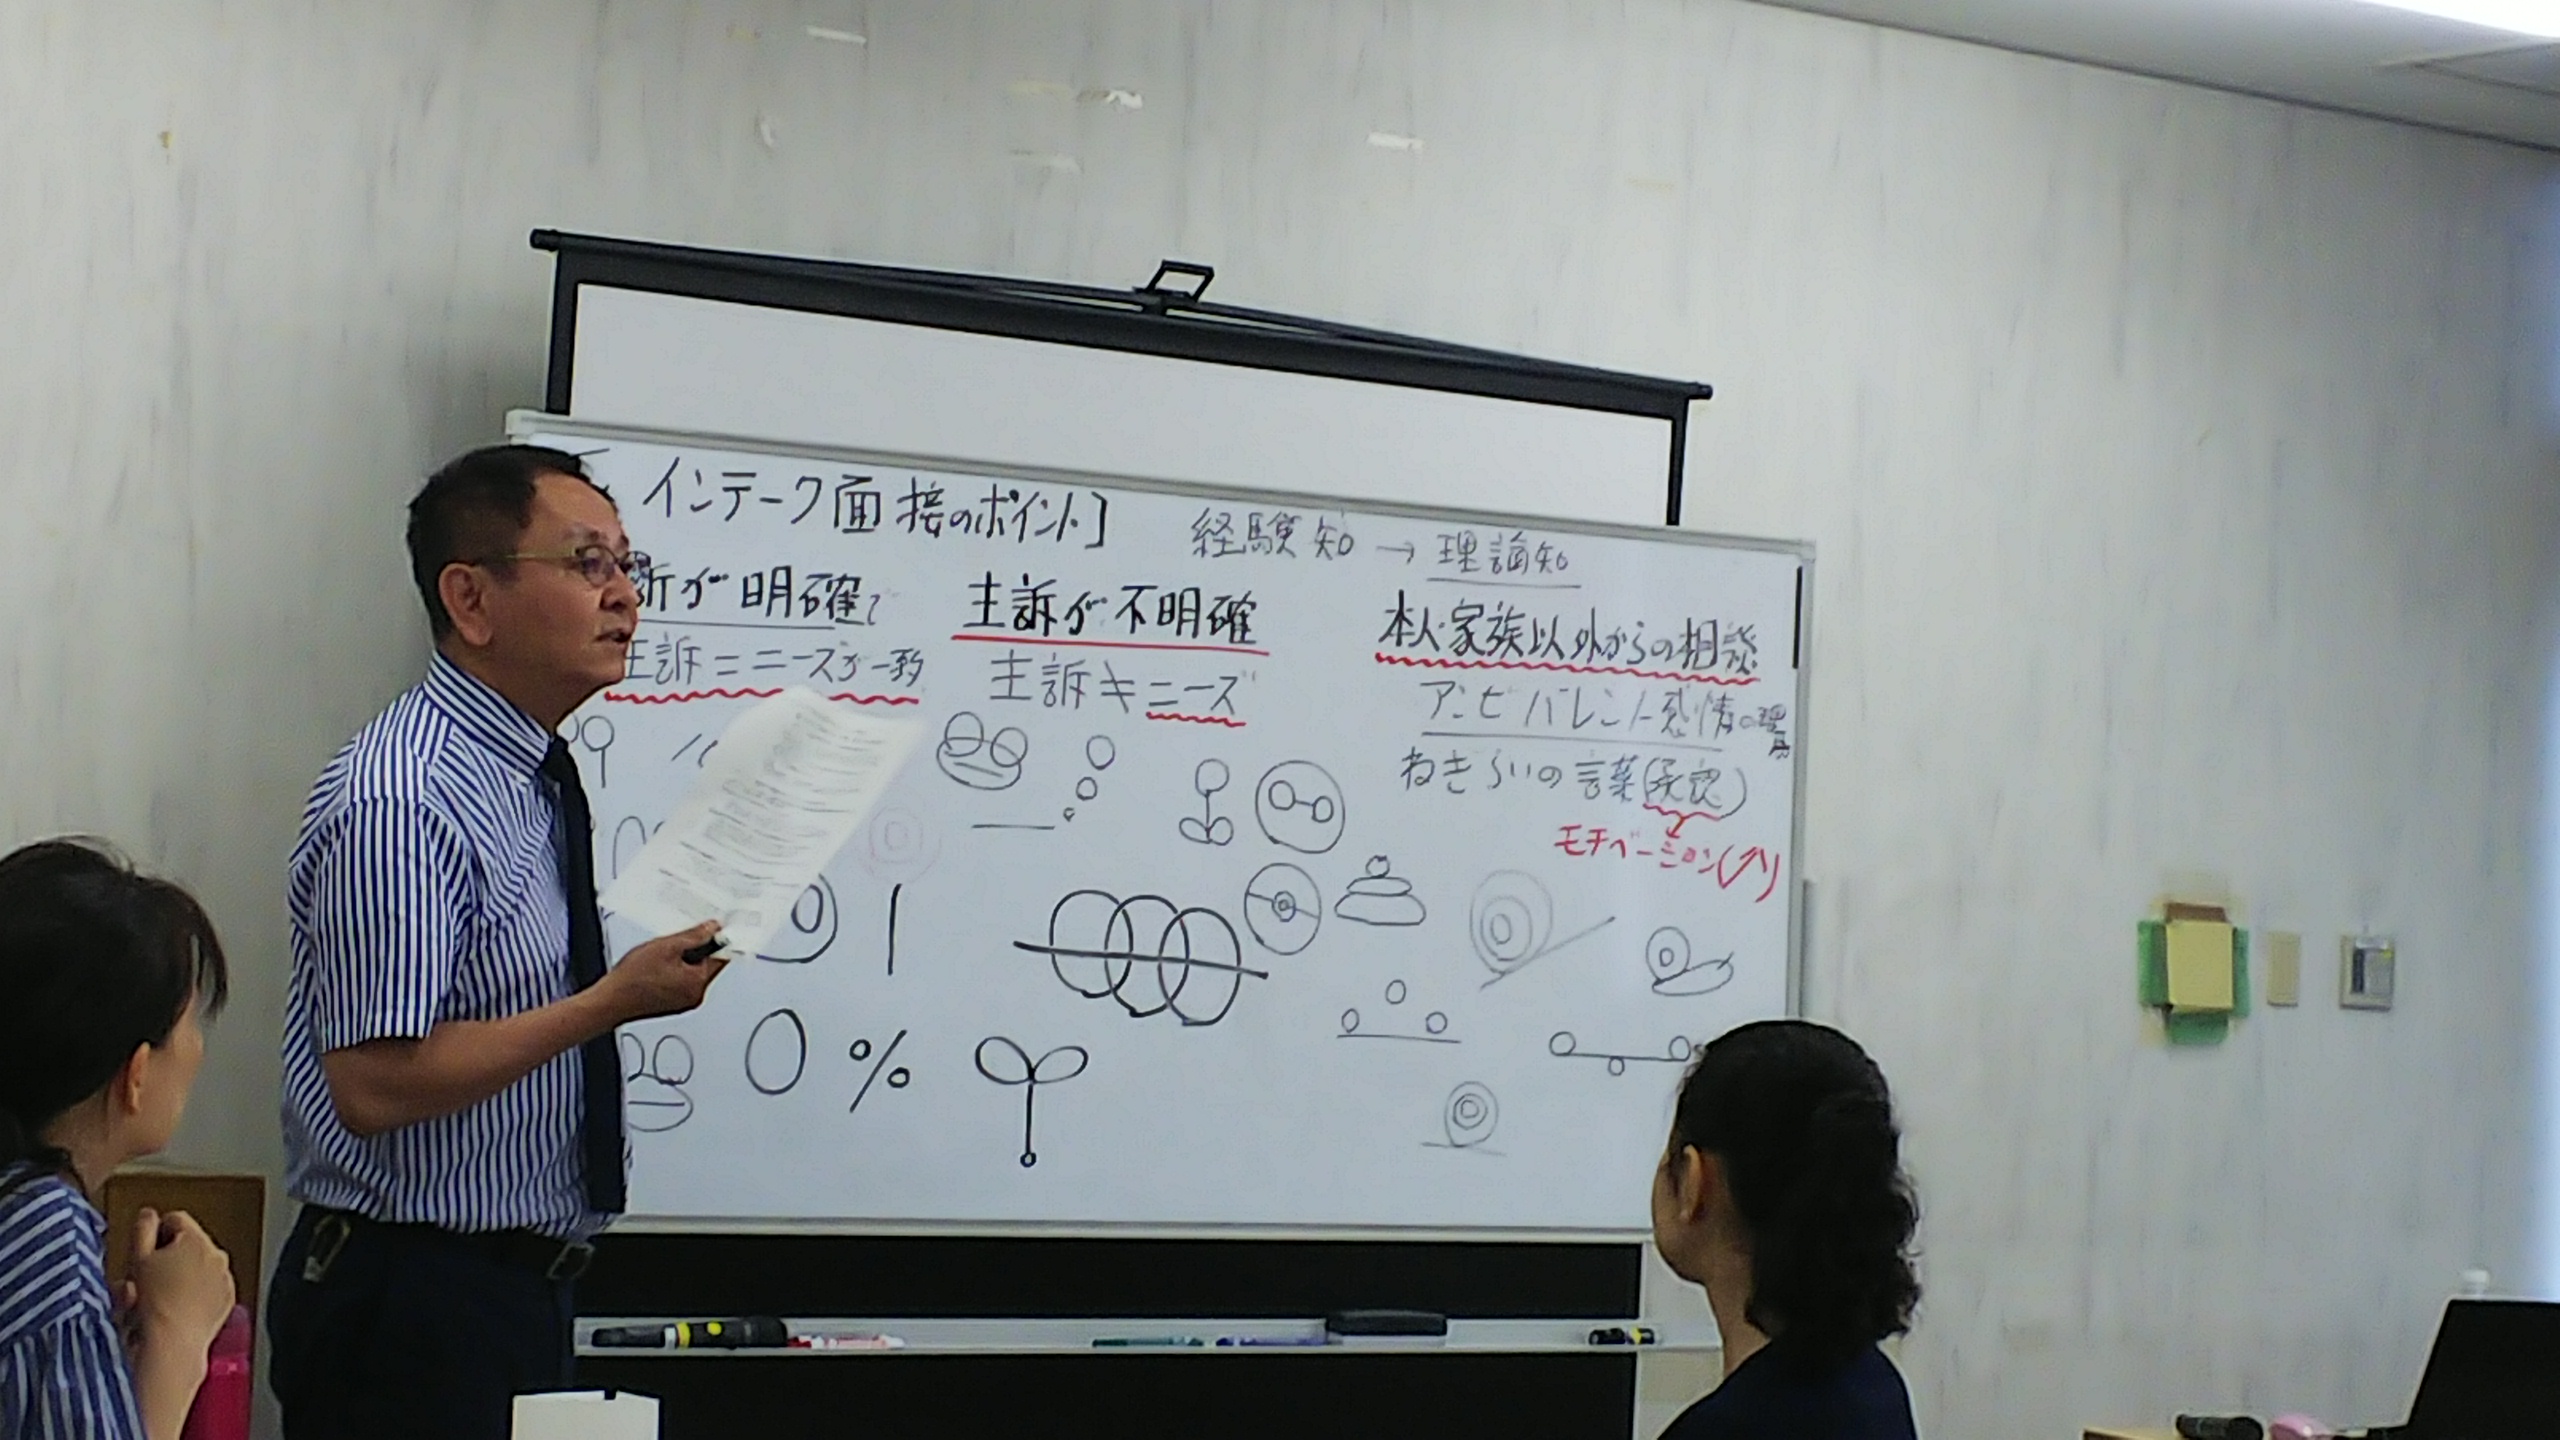 インテーク面接のポイント]
経験知 → 理論知
訴が明確で
主訴=ニーズが一致
主訴が不明確
主訴≠ニーズ
本人・家族以外からの相談
アンビバレント感情の理解
ねぎらいの言葉(承認)
モチベーション(↗)
0 %